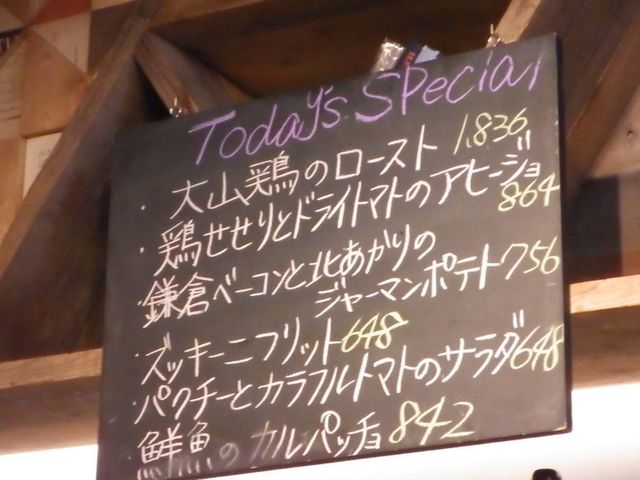 Today's Special
・大山鶏のロースト 1,836
・鶏せせりとドライトマトのアヒージョ
864
・鎌倉ベーコンと北あかりの
ジャーマンポテト 756
・ズッキーニフリット 648
・パクチーとカラフルトマトのサラダ 648
鮮魚のカルパッチョ 842